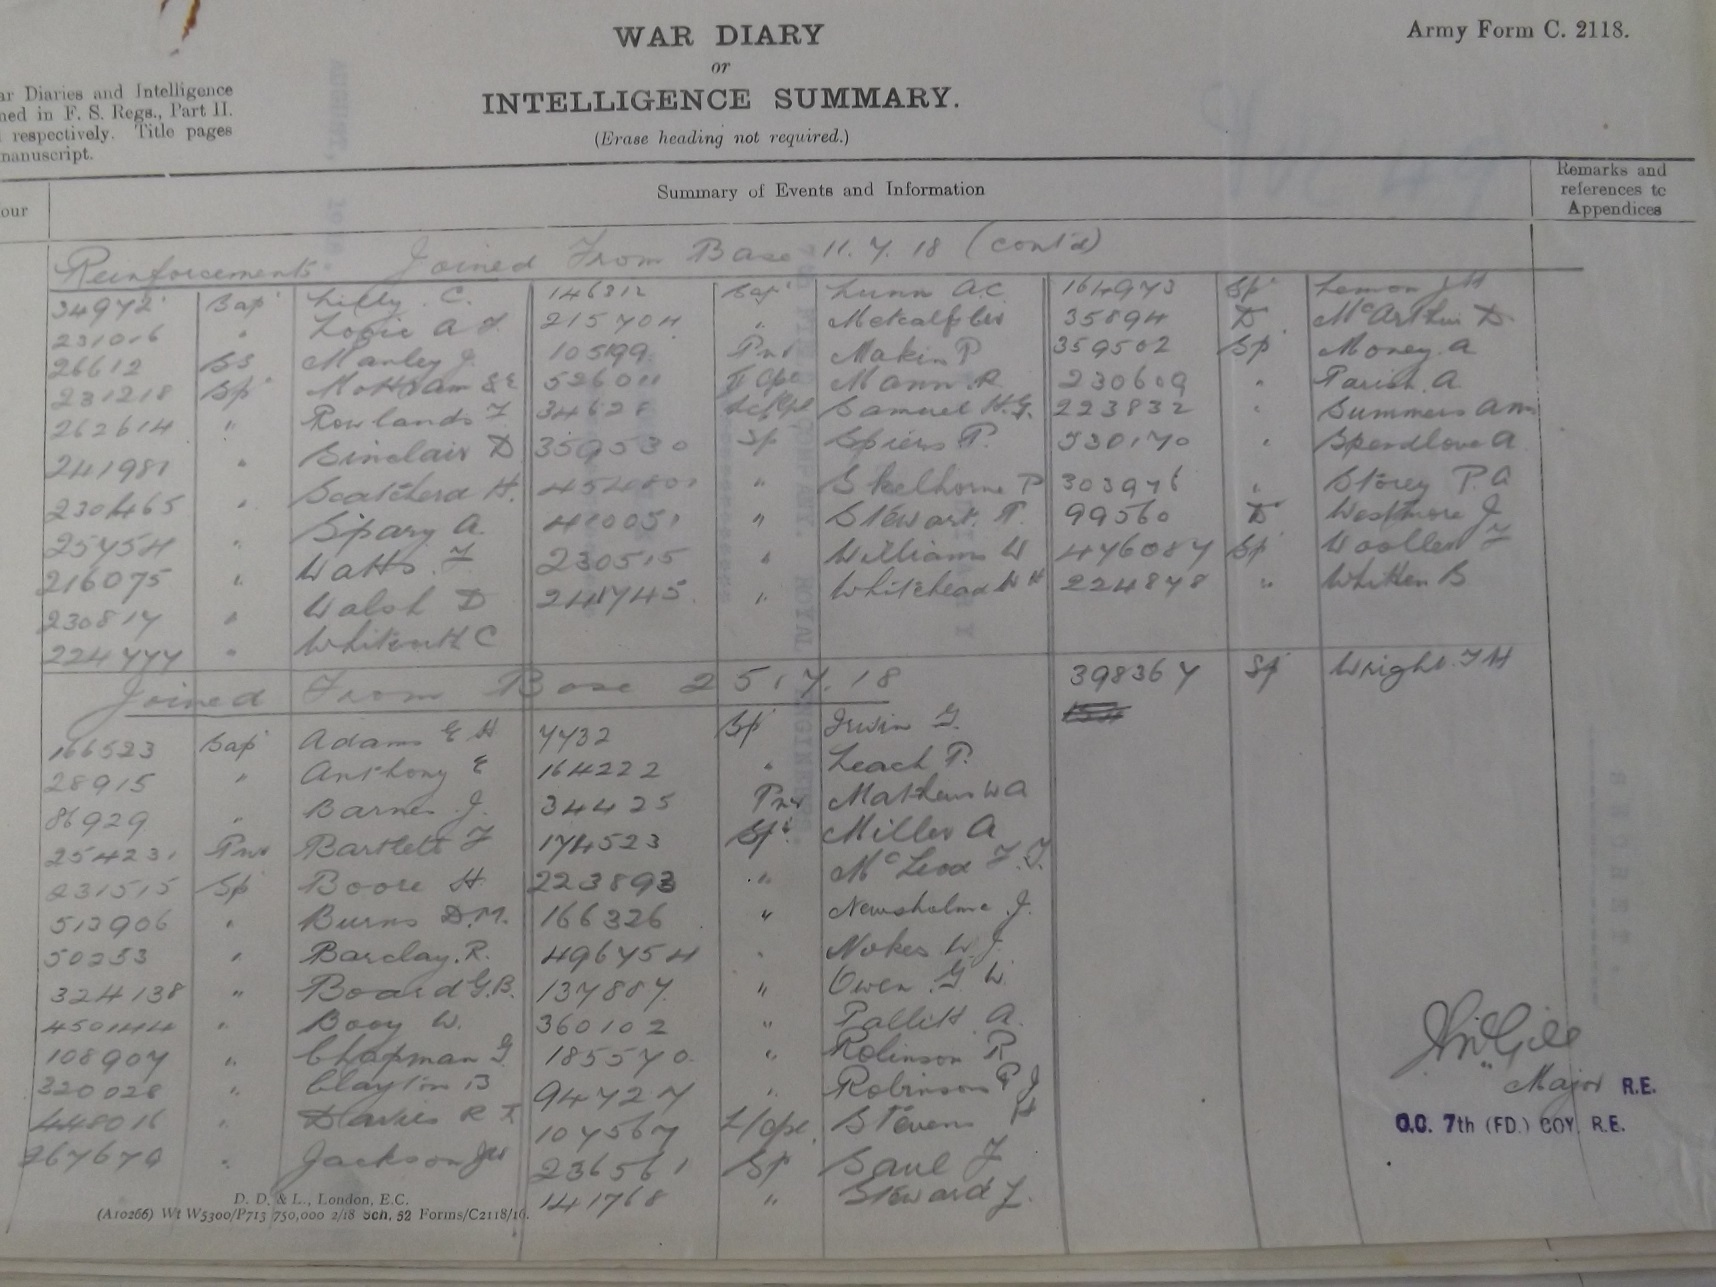 WAR DIARY
Army Form C. 2118.
or
INTELLIGENCE SUMMARY.
(Erase heading not required.)
ar Diaries and Intelligence
ned in F. S. Regs., Part II.
respectively. Title pages
manuscript.
our
Summary of Events and Information
Remarks and
references to
Appendices
Reinforcements. Joined From Base 11.7.18 (cont'd)
34972 Sap' Lilly. C. 146312 Sap' Lunn A.C. 164973 Sp' Lemon J H
231016 " Logie A 215704 " Metcalf 35894 D McArthur D
26612 SS Manley J. 105199 Pnr Makin P 359502 Sp Money. A
231218 Sp' Mottram S E 526011 Mann. R. 230609 " Parish. A
262614 " Rowlands F 34628 Samuel H.G. 223832 " Summers
241981 " Sinclair D 359530 Sp Spiers T. 530170 " Spendlove A
230465 " Scatcherd H. " Skelhorne P 303976 " Storey P.A
25754 " Spary A. 410051 " Stewart. T. 99560 D Westmore J
216075 " Watts. F 230515 " Williams W 476087 Sp' Woollen F
230817 " Walsh D 241745. " Whitehead W H 224878 " Whitten B
224777 " C
Joined From Base 25.7.18 398367 Sp' Wright. F H
166523 Sap' Adams E H 7732 Sp' Irwin G.
28915 " Anthony E 164222 " Leach P.
86929 " Barnes J. 34425 Pnr Mathews W A
254231 Pnr Bartlett F 174523 Sp'. Miller A
231515 Sp' Boore H 223893 " McLeod F.
513906 " Burns D.M. 166326 " Newsholme J.
50253 " Barclay. R. 496754 " Nokes W. J.
324138 " Board G.B. 137887. " Owen. G W.
450144 " Booy W. 360102 " Pallitt. A.
108907 " Chapman G 185570. " Robinson R
320028 " Clayton B 94727 " Robinson P J
448016 " Davies R 107567 L/Cpl. Stevens H
267679 " Jackson 236561 Sp Saul F
141768 " Steward J.
Major R.E.
O.C. 7th (FD.) COY. R.E.
D. D. & L., London, E.C.
(A10266) Wt W5300/P713 750,000 2/18 Sch. 52 Forms/C2118/16.